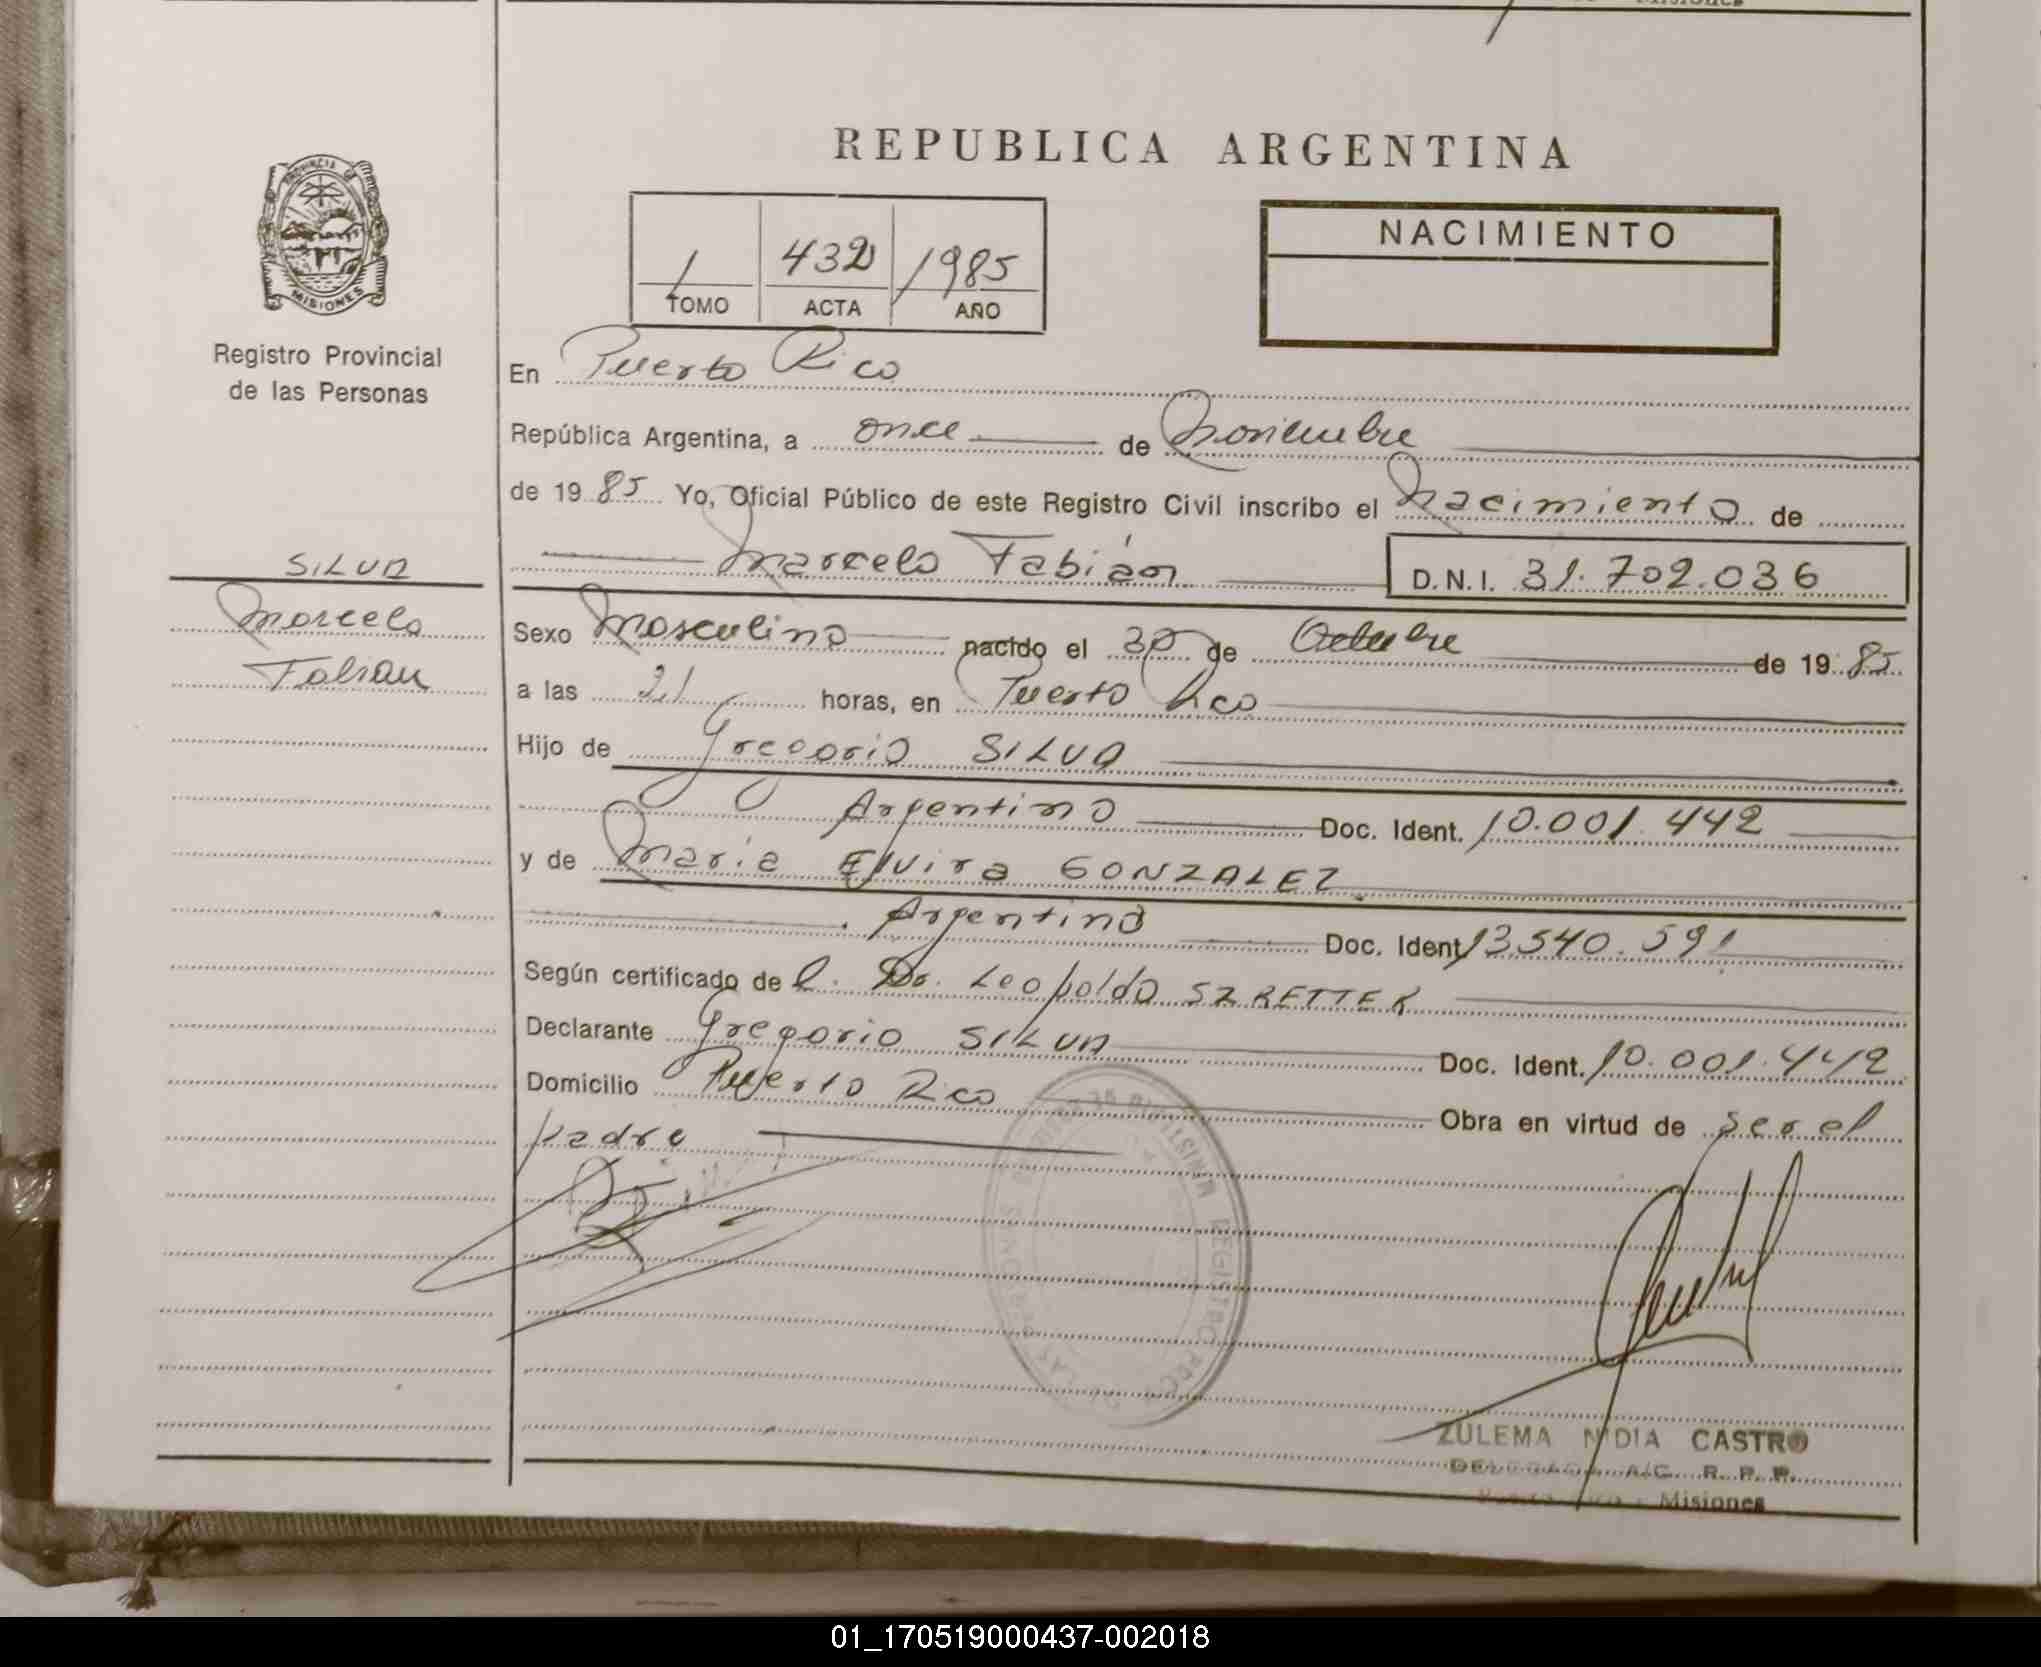 Misiones
REPUBLICA ARGENTINA
PROVINCIA
MISIONES
Registro Provincial
de las Personas
1 432 1985
TOMO ACTA AÑO
NACIMIENTO
En Puerto Rico
República Argentina, a once de Noviembre
de 19 85 Yo, Oficial Público de este Registro Civil inscribo el Nacimiento de
Marcelo Fabián D.N.I. 31.702.036
SILVA
Marcelo
Fabian
Sexo Masculino nacido el 30 de Octubre de 19 85
a las 21 horas, en Puerto Rico
Hijo de Gregorio SILVA
Argentino Doc. Ident. 10.001.442
y de María Elvira GONZALEZ
Argentina Doc. Ident 13.540.591
Según certificado de l. Dr. Leopoldo SZRETTER
Declarante Gregorio SILVA Doc. Ident. 10.001.442
Domicilio Puerto Rico Obra en virtud de ser el
padre
ZULEMA NIDIA CASTRO
DELEGADA A/C. R. P. P.
Misiones
01_170519000437-002018